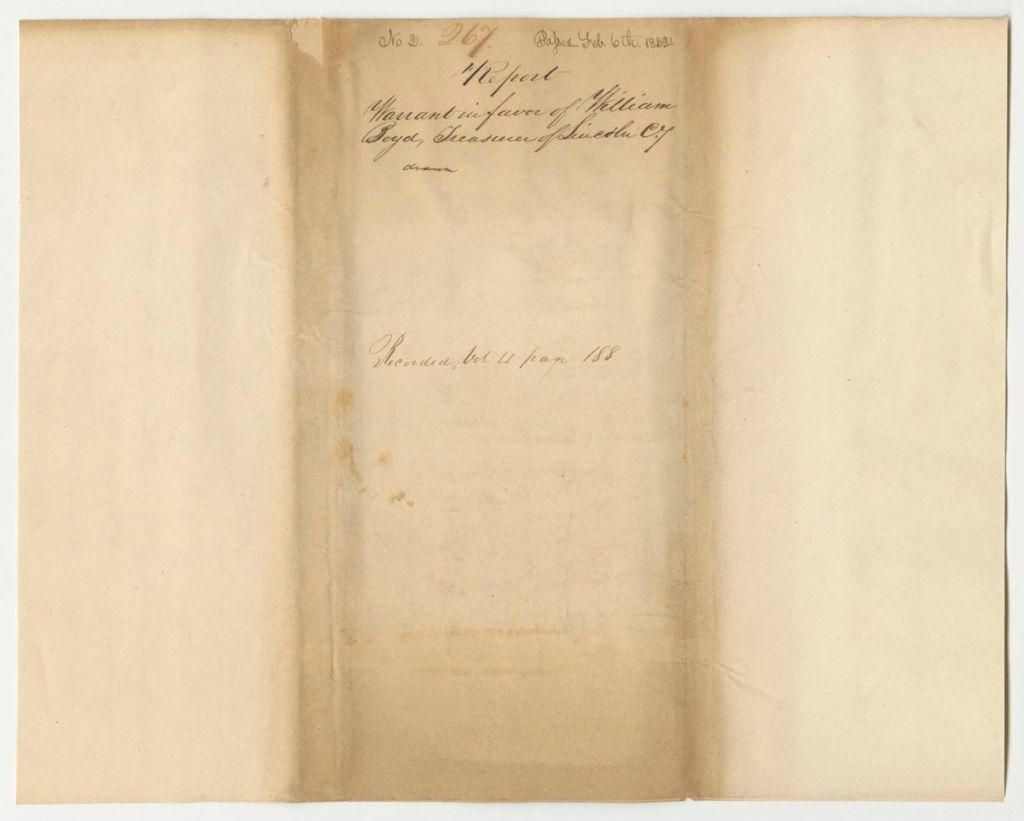 No 2. 267. Passed Feb. 6th. 1832.
Report
Warrant in favor of William
Boyd, Treasurer of Lincoln Cy
drawn
Recorded, Vol 4 page 188